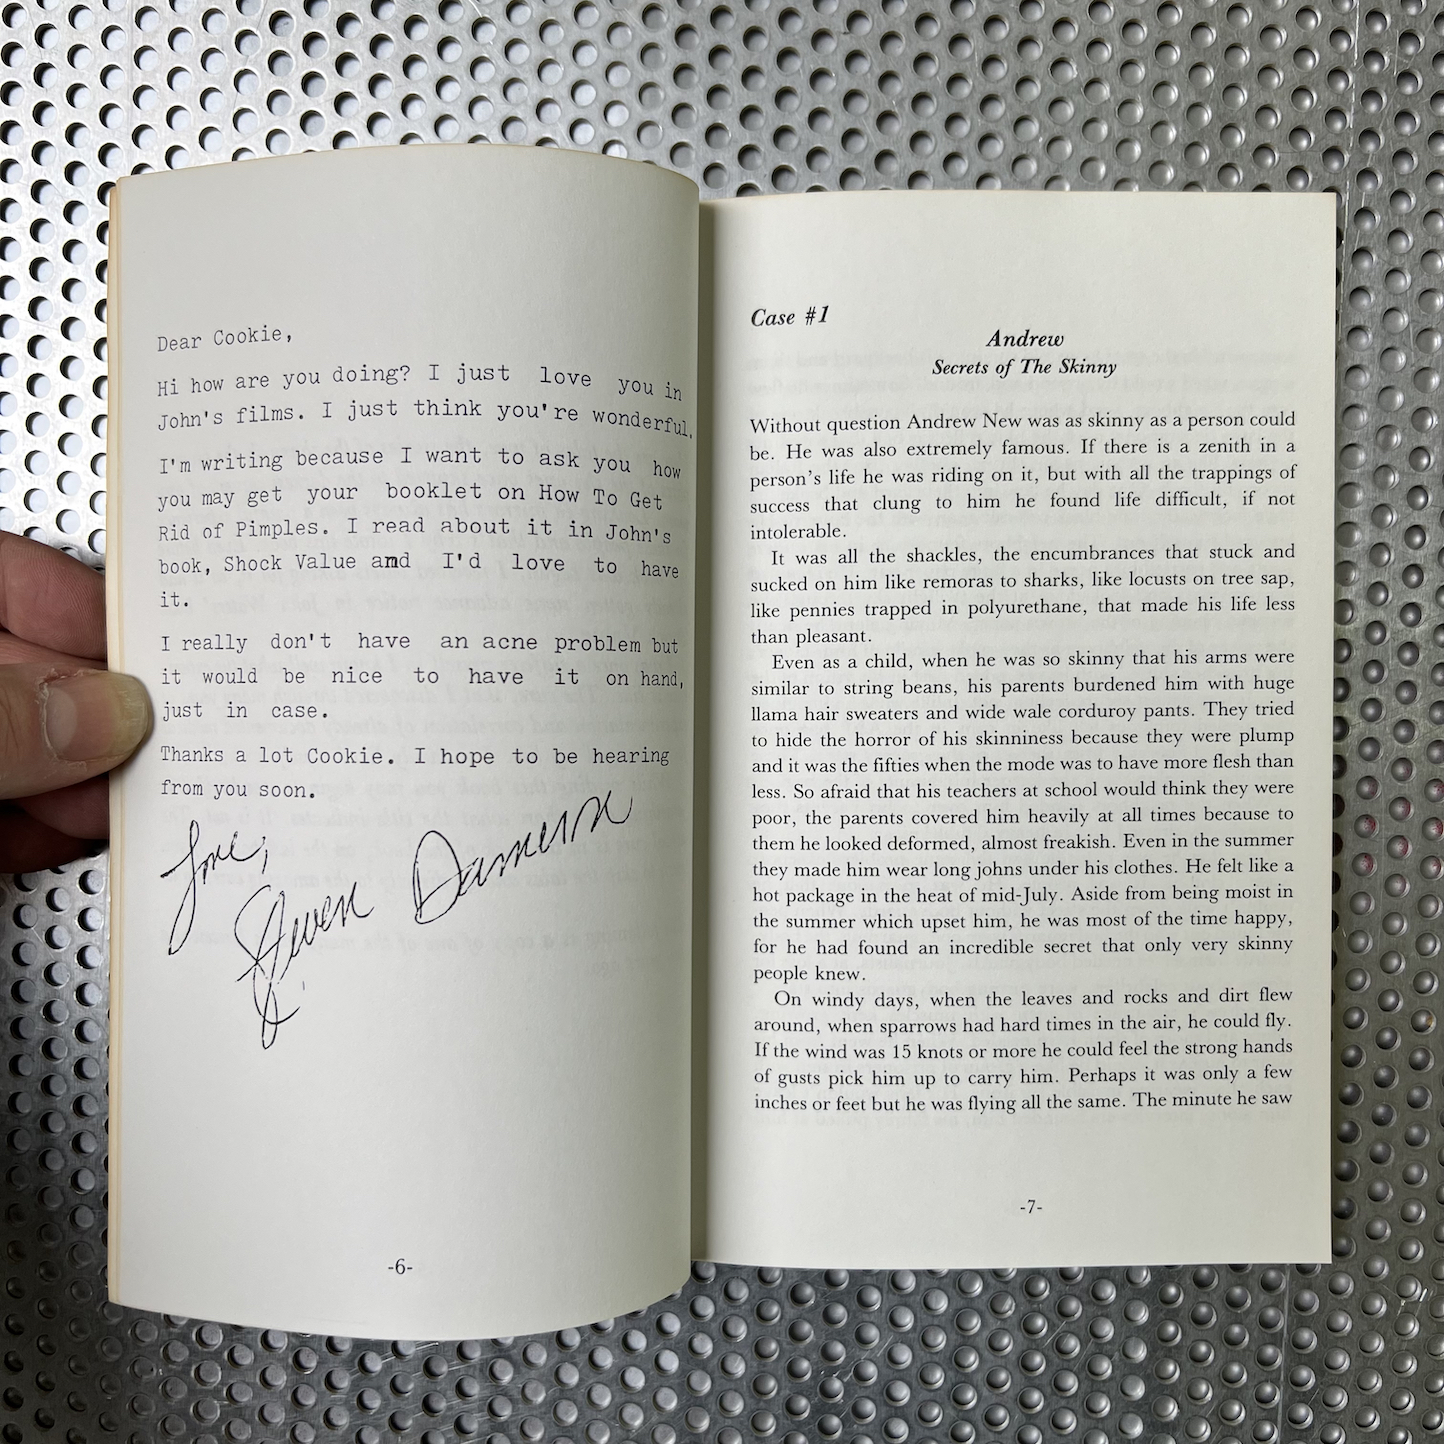 Dear Cookie,
Hi how are you doing? I just love you in
John's films. I just think you're wonderful.
I'm writing because I want to ask you how
you may get your booklet on How To Get
Rid of Pimples. I read about it in John's
book, Shock Value and I'd love to have
it.
I really don't have an acne problem but
it would be nice to have it on hand,
just in case.
Thanks a lot Cookie. I hope to be hearing
from you soon.
Love,
Steven Dameron
-6-
Case #1
Andrew
Secrets of The Skinny
Without question Andrew New was as skinny as a person could
be. He was also extremely famous. If there is a zenith in a
person's life he was riding on it, but with all the trappings of
success that clung to him he found life difficult, if not
intolerable.
It was all the shackles, the encumbrances that stuck and
sucked on him like remoras to sharks, like locusts on tree sap,
like pennies trapped in polyurethane, that made his life less
than pleasant.
Even as a child, when he was so skinny that his arms were
similar to string beans, his parents burdened him with huge
llama hair sweaters and wide wale corduroy pants. They tried
to hide the horror of his skinniness because they were plump
and it was the fifties when the mode was to have more flesh than
less. So afraid that his teachers at school would think they were
poor, the parents covered him heavily at all times because to
them he looked deformed, almost freakish. Even in the summer
they made him wear long johns under his clothes. He felt like a
hot package in the heat of mid-July. Aside from being moist in
the summer which upset him, he was most of the time happy,
for he had found an incredible secret that only very skinny
people knew.
On windy days, when the leaves and rocks and dirt flew
around, when sparrows had hard times in the air, he could fly.
If the wind was 15 knots or more he could feel the strong hands
of gusts pick him up to carry him. Perhaps it was only a few
inches or feet but he was flying all the same. The minute he saw
-7-